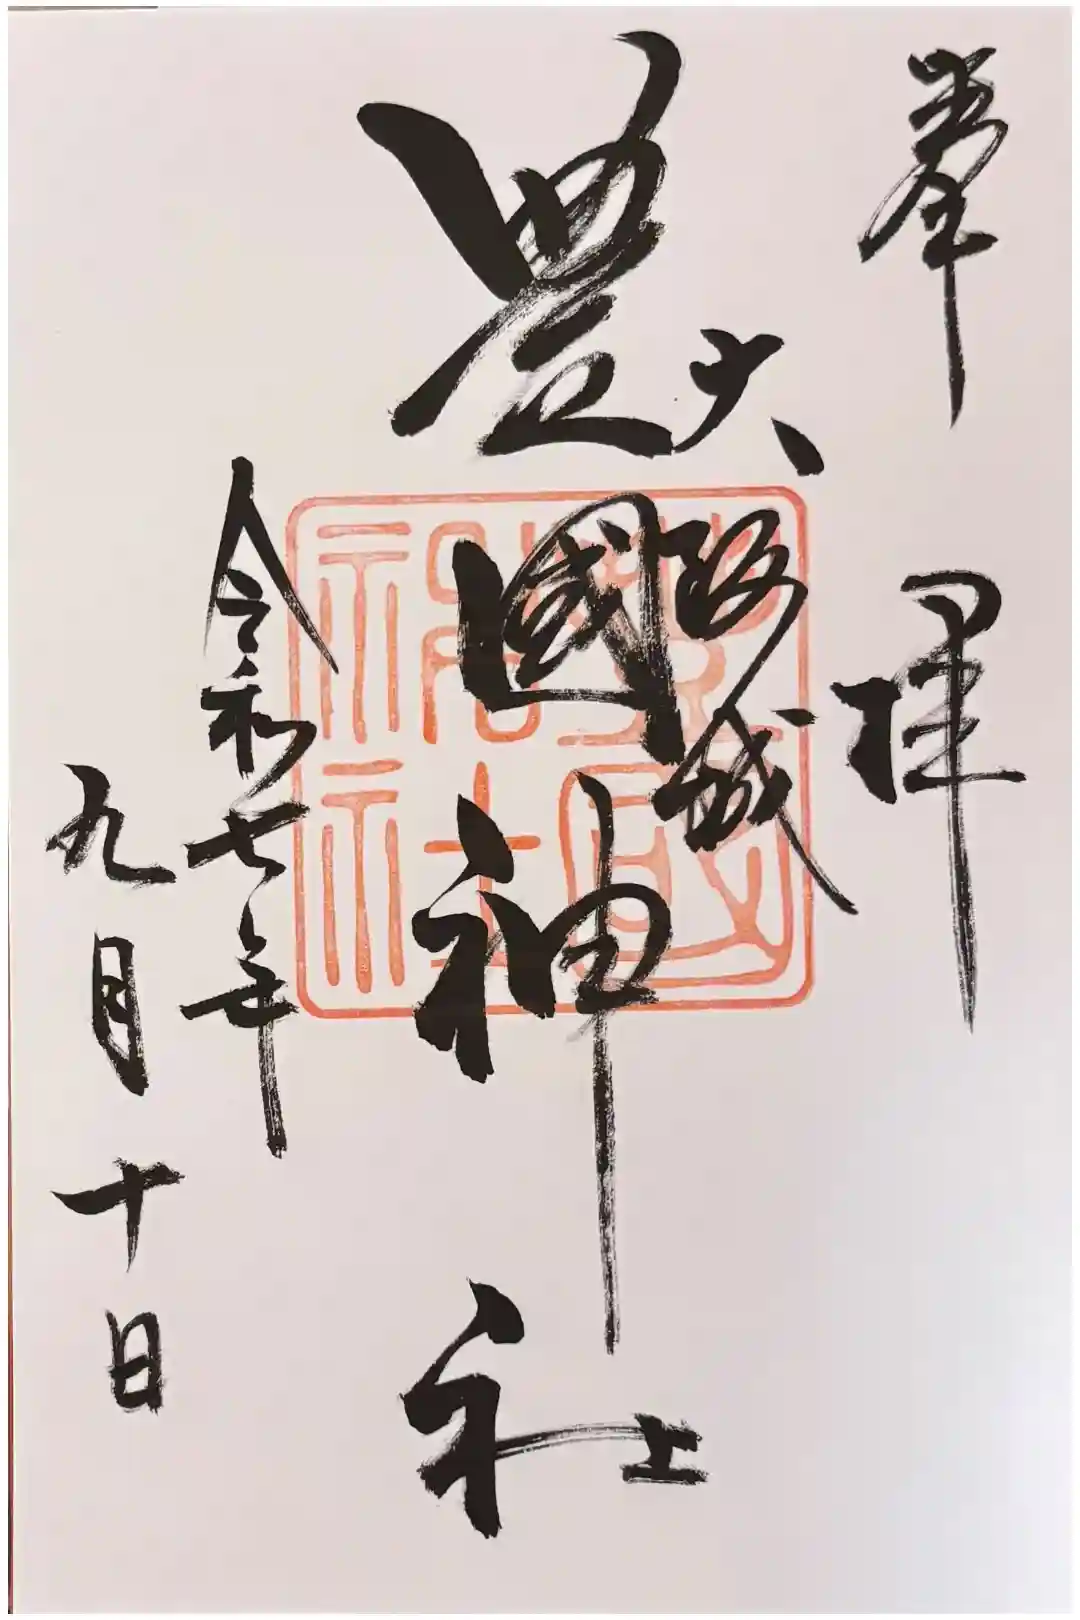 奉拝
大阪城
豊國神社
令和七年
九月十日
豊国神社